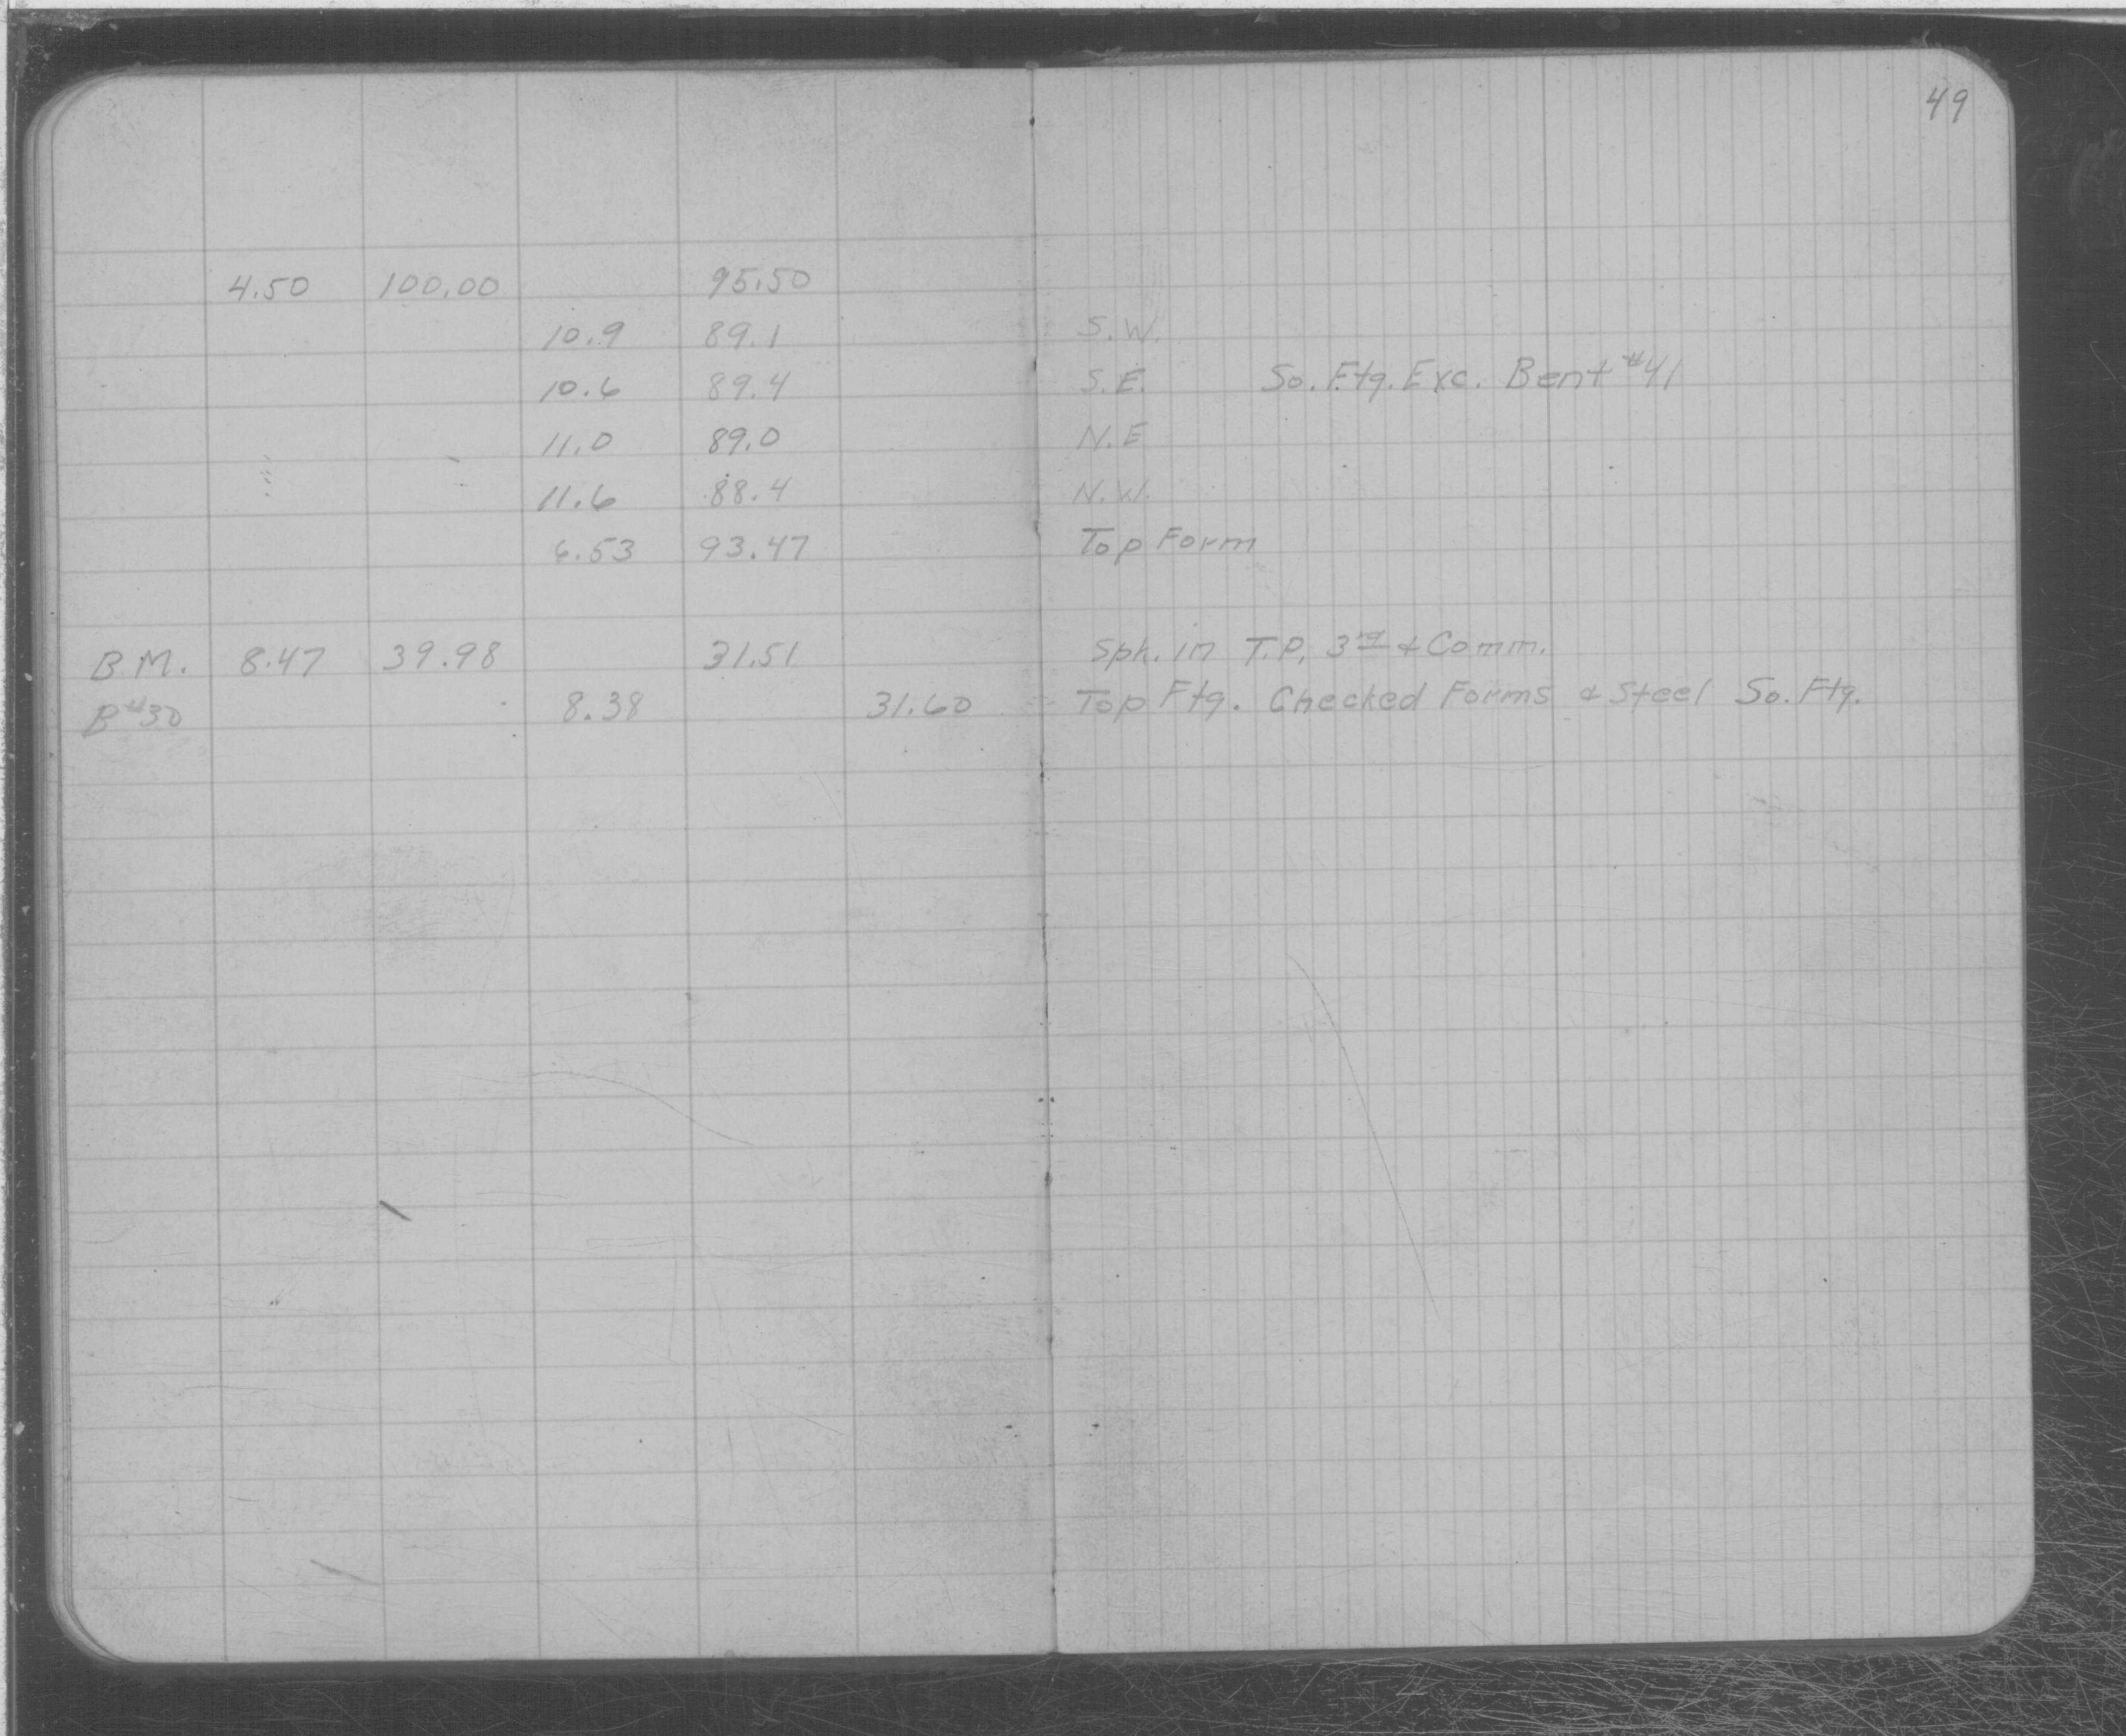 49
4.50 100.00 95.50
10.9 89.1 S.W.
10.6 89.4 S.E. So. Ftg. Exc. Bent #41
11.0 89.0 N.E
11.6 88.4 N.W.
6.53 93.47 Top Form
B.M. 8.47 39.98 31.51 Spk. in T.P. 3rd & Comm.
B#30 8.38 31.60 Top Ftg. Checked Forms & Steel So. Ftg.